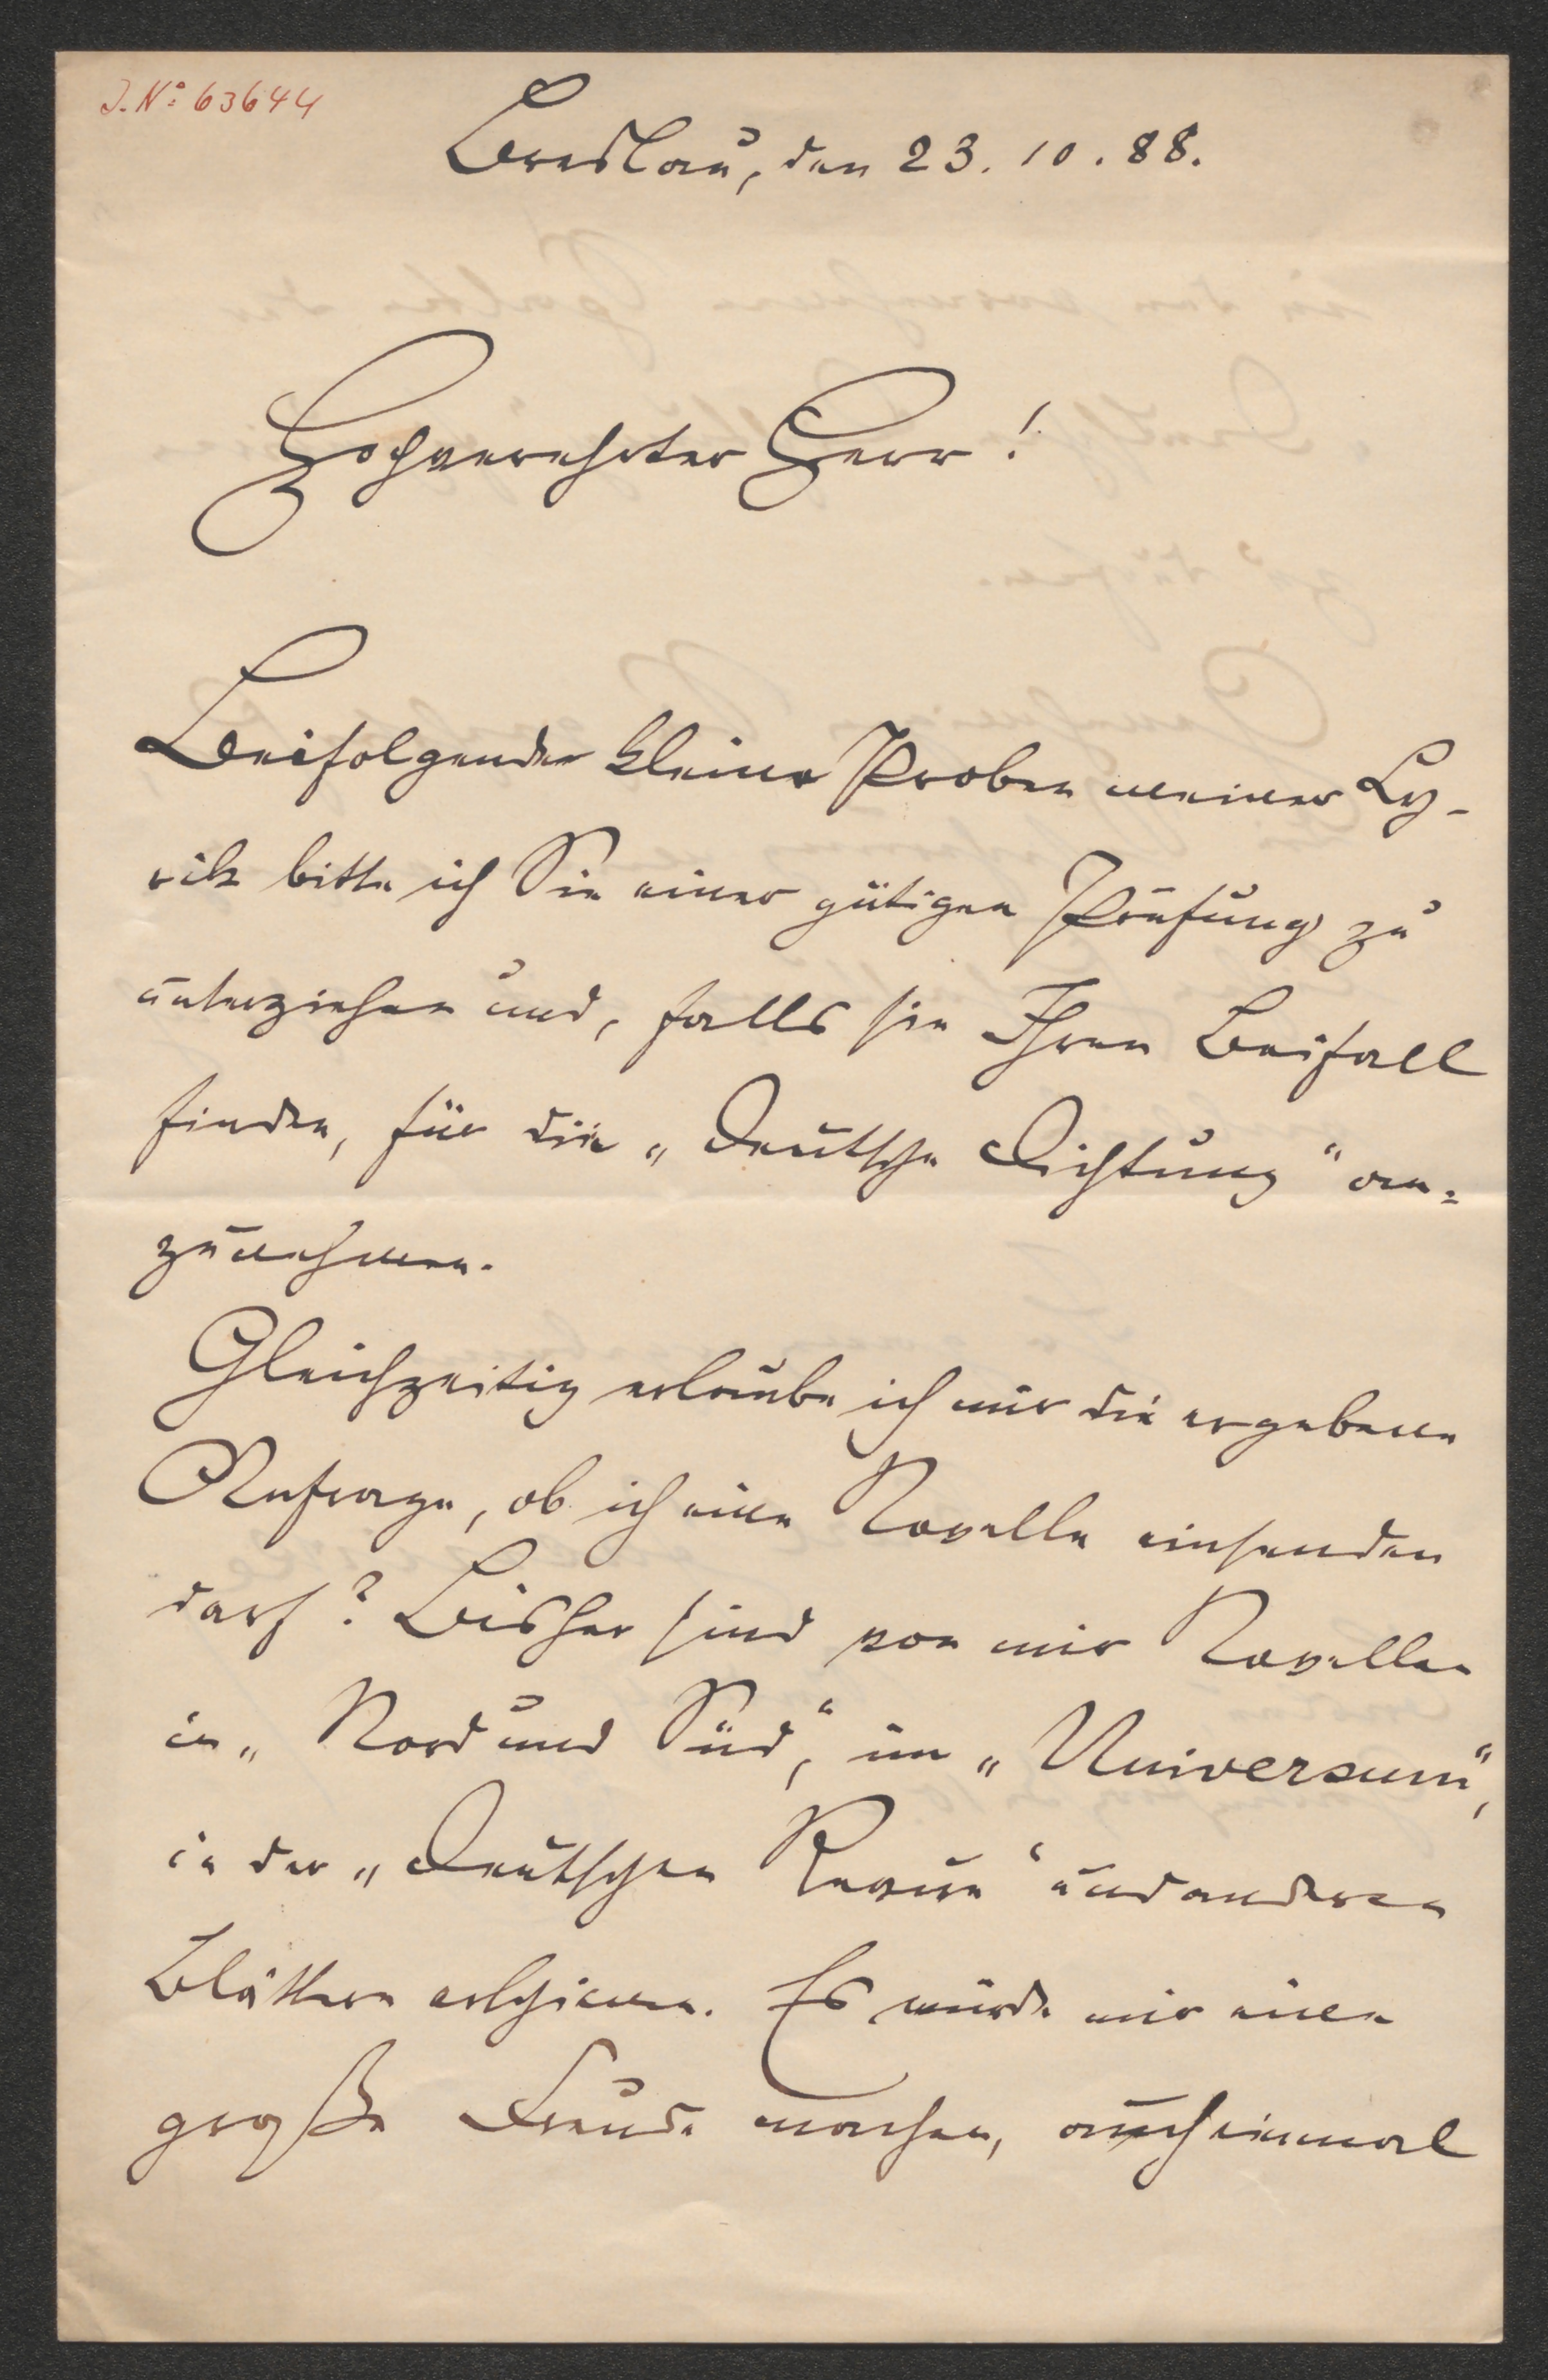 J. № 63644
Breslau, den 23. 10. 88.
Hochverehrter Herr!
Beifolgende kleine Proben meiner Ly-
rik bitte ich Sie einer gütigen Prüfung zu
unterziehen und, falls sie Ihren Beifall
finden, für die „Deutsche Dichtung“ an-
zunehmen.
Gleichzeitig erlaube ich mir die ergebene
Anfrage, ob ich eine Novelle einsenden
darf? Bisher sind von mir Novellen
in „Nord und Süd“, im „Universum“,
in der „Deutschen Revue“ und anderen
Blättern erschienen. Es würde mir eine
große Freude machen, auch einmal